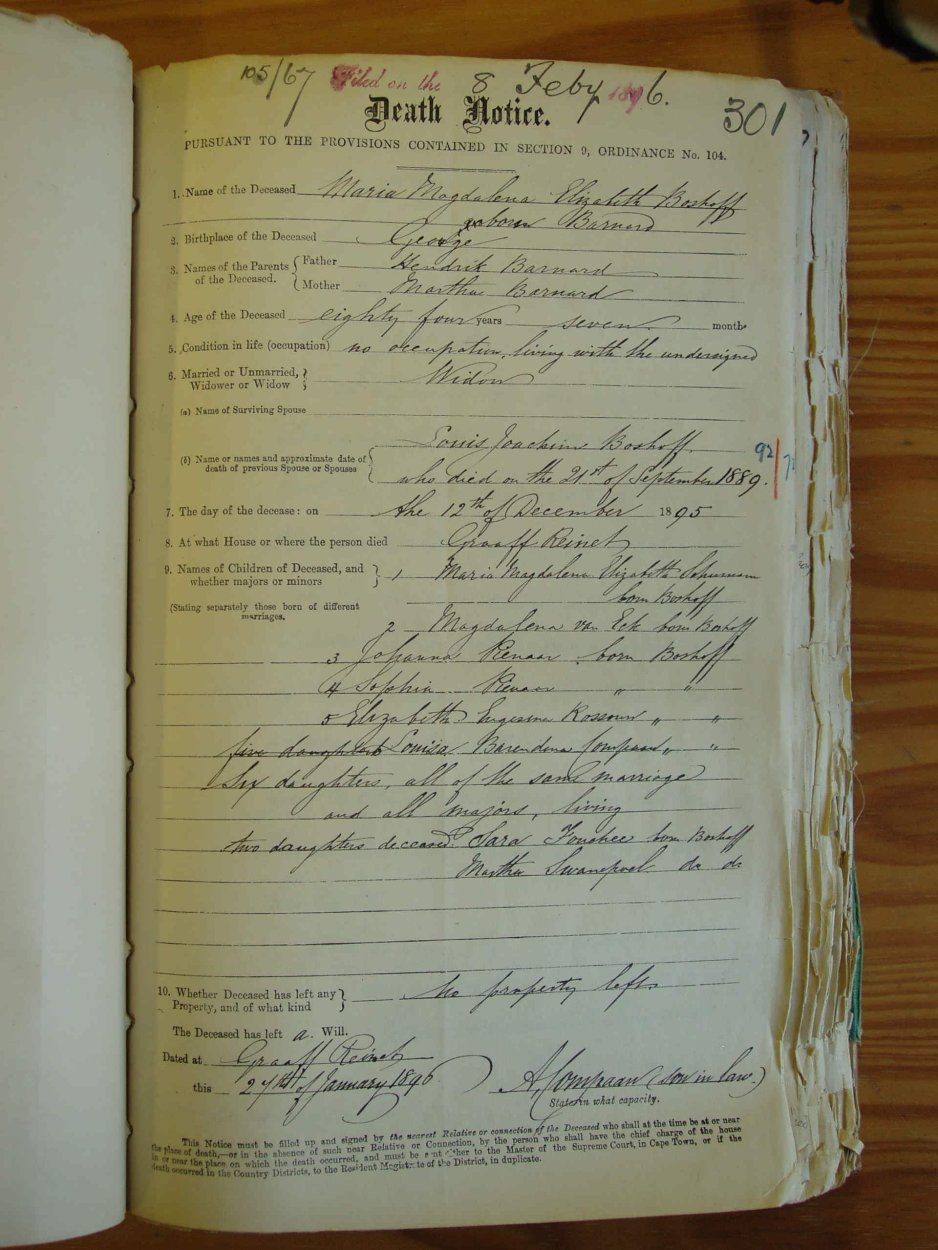 105/67 Filed on the 8 Feby 1896.
Death Notice.
301
PURSUANT TO THE PROVISIONS CONTAINED IN SECTION 9, ORDINANCE No. 104.
1. Name of the Deceased Maria Magdalena Elizabeth Boshoff
geboren Barnard
2. Birthplace of the Deceased George
3. Names of the Parents of the Deceased. Father Hendrik Barnard
Mother Martha Barnard
4. Age of the Deceased eighty four years seven months
5. Condition in life (occupation) no occupation, living with the undersigned
6. Married or Unmarried, Widower or Widow Widow
(a) Name of Surviving Spouse
Louis Joachim Boshoff.
(b) Name or names and approximate date of death of previous Spouse or Spouses
who died on the 21st of September 1889.
92/7
7. The day of the decease: on the 12th of December 1895
8. At what House or where the person died Graaff Reinet
9. Names of Children of Deceased, and whether majors or minors 1 Maria Magdalena Elizabeth Schumann
born Boshoff
(Stating separately those born of different marriages.
2 Magdalena van Eck born Boshoff
3 Johanna Pienaar born Boshoff
4 Sophia Pienaar " "
5 Elizabeth Rossouw " "
five daughters Louisa Barendina Compaan " "
Six daughters, all of the same marriage
and all majors, living
two daughters deceased. Sara Fouchee born Boshoff
Martha Swanepoel do do
10. Whether Deceased has left any Property, and of what kind no property left.
The Deceased has left a Will.
Dated at Graaff Reinet
this 27th of January 1896
A. Compaan (son in law.)
State in what capacity.
This Notice must be filled up and signed by the nearest Relative or connection of the Deceased who shall at the time be at or near
the place of death,—or in the absence of such near Relative or Connection, by the person who shall have the chief charge of the house
in or near the place on which the death occurred, and must be sent either to the Master of the Supreme Court, in Cape Town, or if the
death occurred in the Country Districts, to the Resident Magistrate of the District, in duplicate.